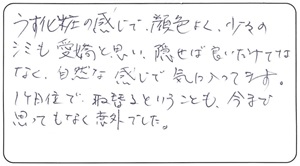 うす化粧の感じで、顔色よく、少々の
シミも愛嬌と思い、隠せば良いだけでは
なく、自然な感じで気に入ってます。
1ヶ月位で、取替るということも、今まで
思ってもなく意外でした。